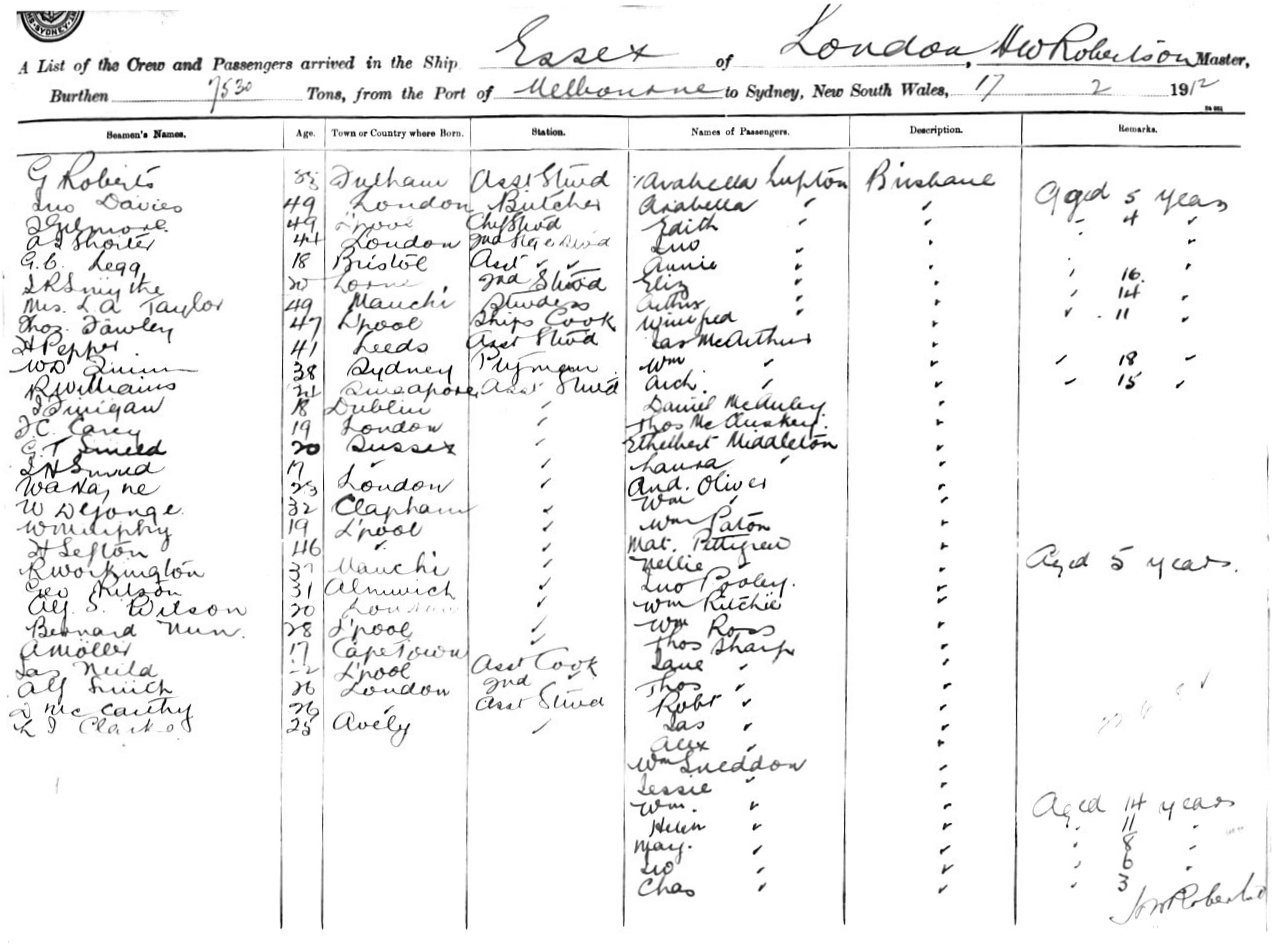 SYDNEY
A List of the Crew and Passengers arrived in the Ship Essex of London, HW Robertson Master,
Burthen 7530 Tons, from the Port of Melbourne to Sydney, New South Wales, 17 2 1912
Seamen's Names. Age. Town or Country where Born. Station. Names of Passengers. Description. Remarks.
G Roberts Fulham Asst Stwd Arabella Lupton Brisbane Aged 5 years
Jno Davies 49 London Butcher Arabella " " " 4 "
J Gilmore 49 L'pool Chf Stwd Edith " "
A J Shorter 44 London 2nd Stge Stwd Jno " "
G.C. Legg 18 Bristol Asst " " Annie " " " 16 "
J R Smythe 20 2nd Stwd Eliz " " " 14 "
Mrs. L A Taylor 49 Manch Stwdess Arthur " " " 11 "
Thos. Fawley 47 L'pool Ships Cook Winifred " "
H Pepper 41 Leeds Asst Stwd Jas McArthur "
WD Quinn 38 Sydney Ptyman Wm " " " 18 "
R Williams 21 Singapore Asst Stwd Arch. " " " 15 "
J Finigan 18 Dublin " Daniel McAuley "
J C. Carey 19 London " Thos McCluskey "
G. T Smeed 20 Sussex " Ethelbert Middleton "
J H Smeed 17 " " Laura " "
23 London " And. Oliver "
W DeJonge 32 Clapham " Wm " "
W Murphy 19 L'pool " Wm Paton "
H Sefton 46 " " Mat. Pettigrew "
R Workington 37 Manch " Nellie " " Aged 5 years.
Geo 31 Alnwich " Jno Pooley. "
Alf. S. Wilson 20 London " Wm Ritchie "
Bernard Nun. 28 L'pool " Wm Ross "
A Möller 17 Cape Town " Thos Sharp "
Jas Neild L'pool Asst Cook Jane " "
Alf Smith 26 London 2nd " Thos " "
J McCarthy 26 " Asst Stwd Robt " "
25 Avely " Jas " "
Alex " "
Wm Sneddon "
Jessie " "
Wm. " " Aged 14 years
Helen " " " 11 "
May. " " " 8 "
Jno " " " 6 "
Chas " " " 3 "
HW Robertson